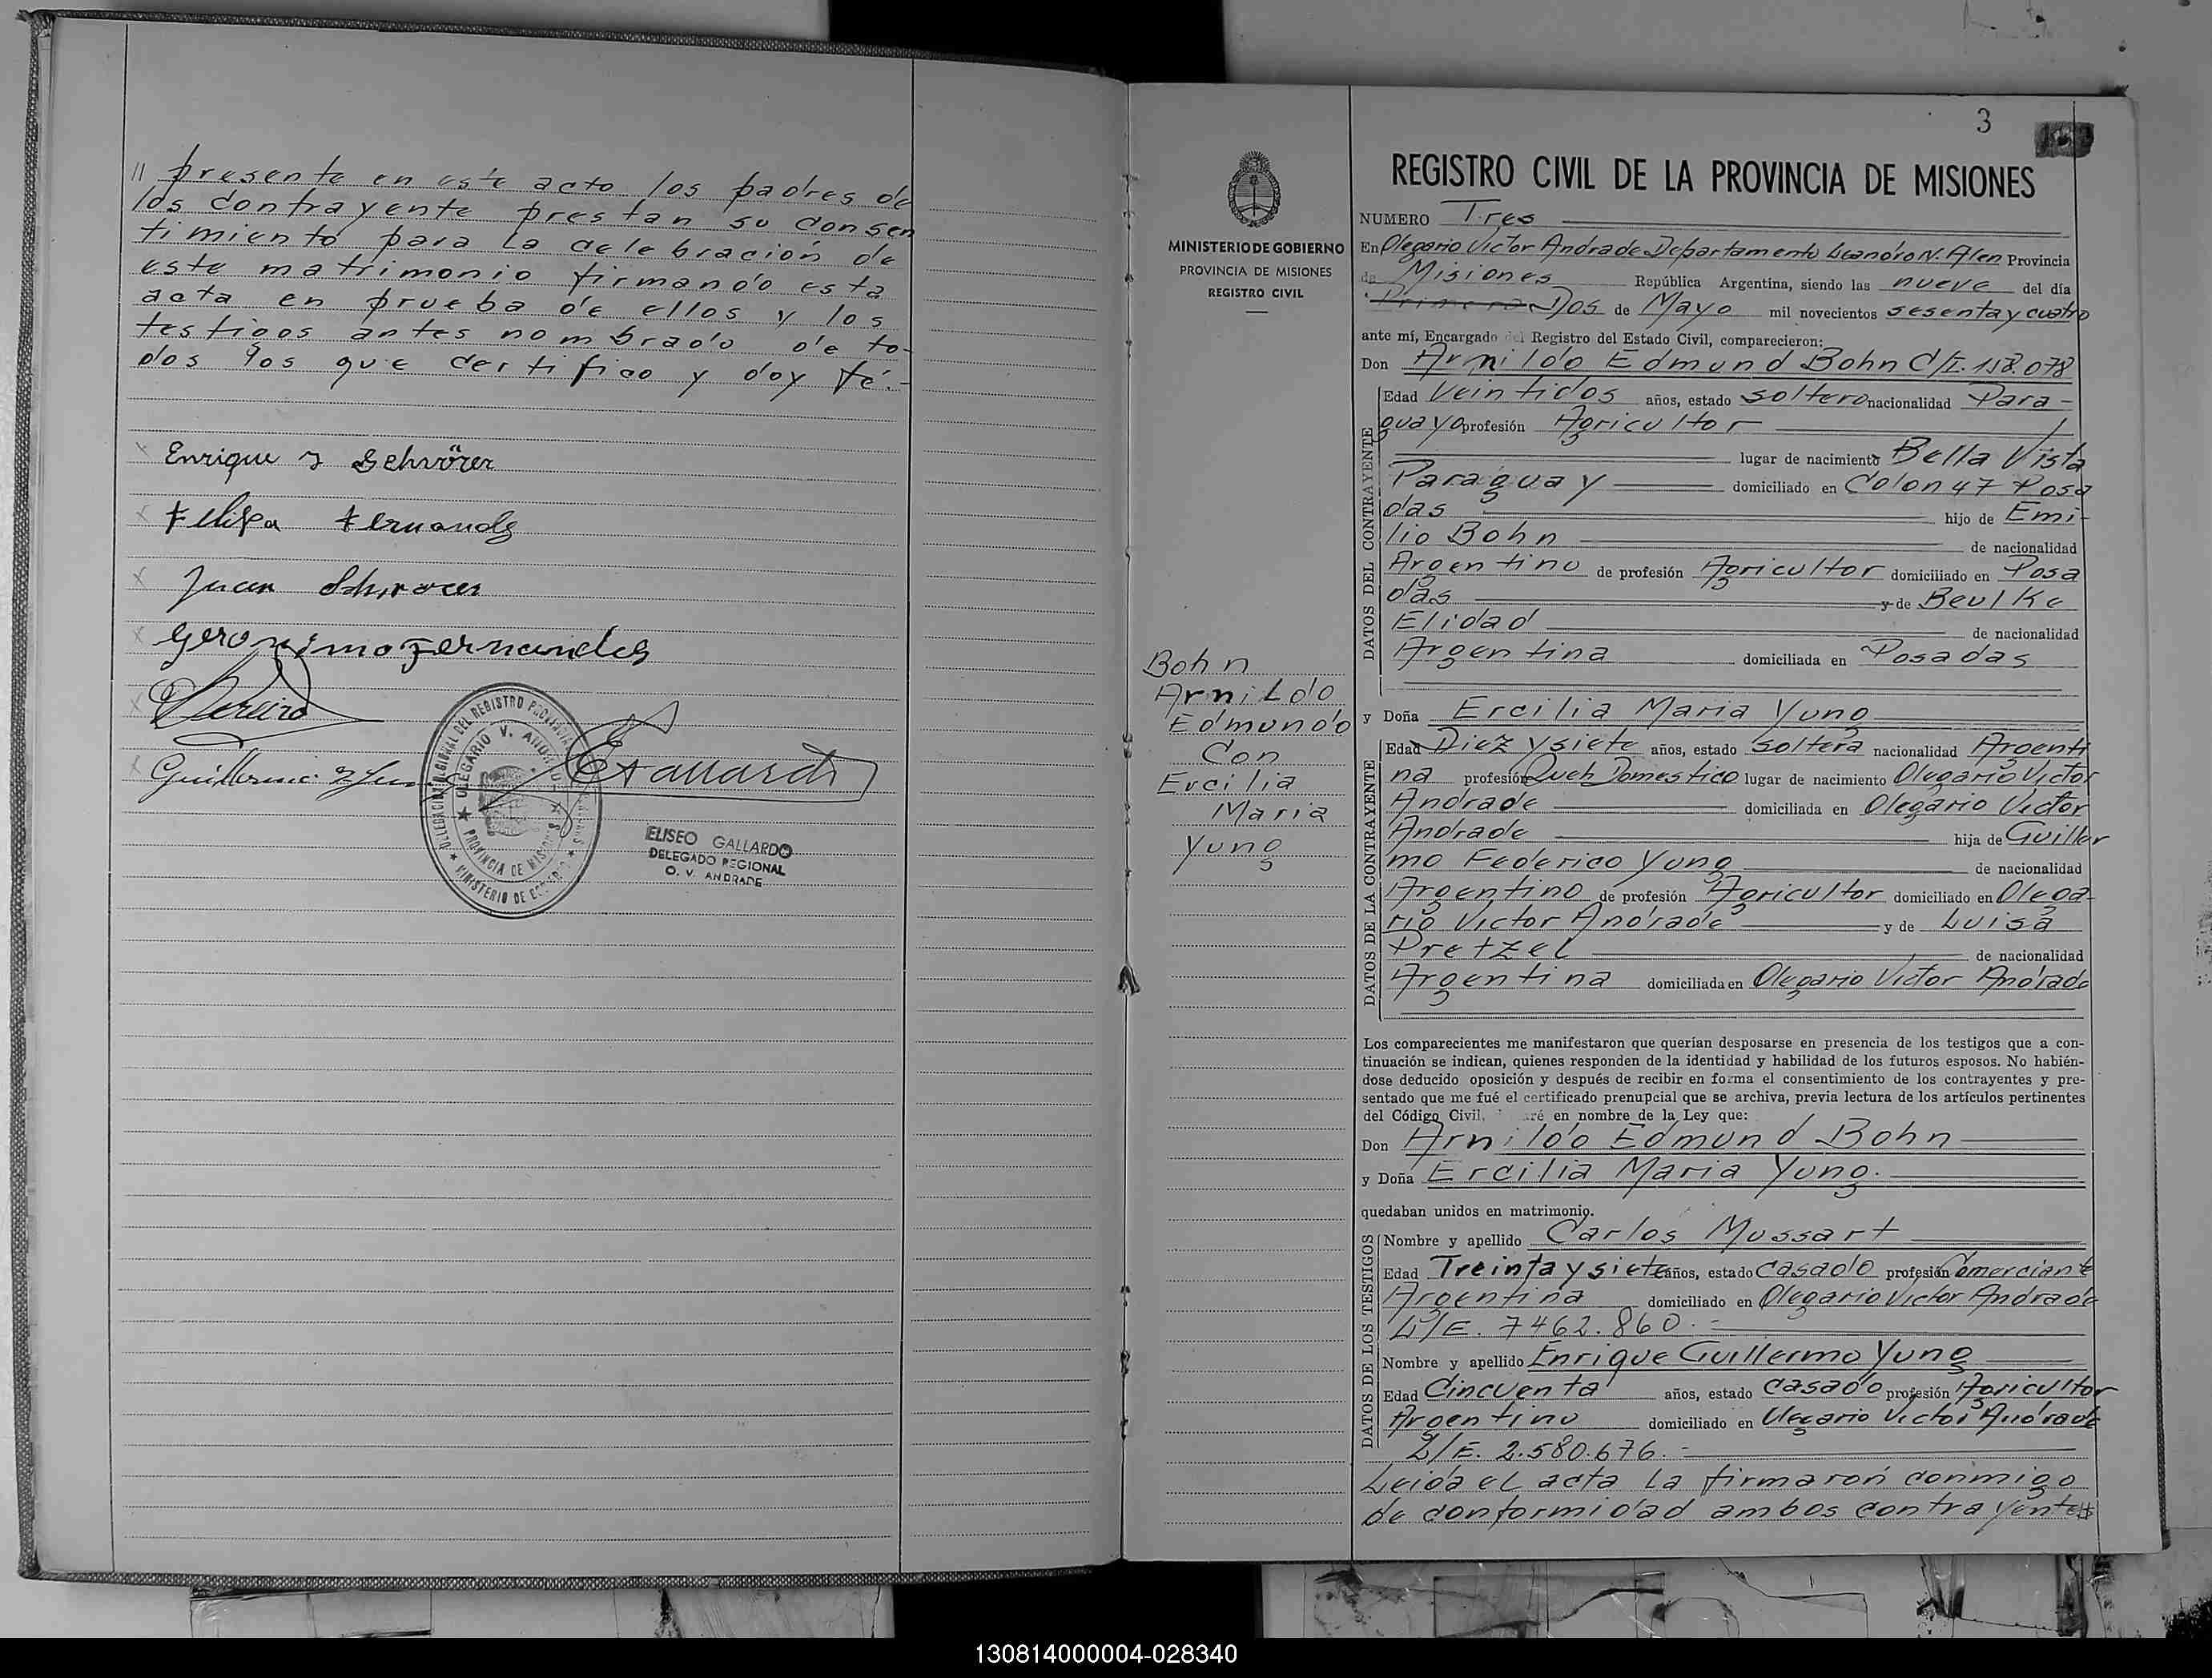 // presente en este acto los padres de
los contrayente prestan su consen
timiento para la celebración de
este matrimonio firmando esta
acta en prueba de ellos y los
testigos antes nombrado de to-
dos los que certifico y doy fé.-
Enrique J Schröer
Felisa Fernande
Juan
Geronimo Fernandes
Pereira
Guillermo
DELEGACION REGIONAL DEL REGISTRO PROVINCIAL
OLEGARIO V. ANDRADE
PROVINCIA DE MISIONES
MINISTERIO DE GOBIERNO
ELISEO GALLARDO
DELEGADO REGIONAL
O. V. ANDRADE
3
MINISTERIO DE GOBIERNO
PROVINCIA DE MISIONES
REGISTRO CIVIL
Bohn
Arnildo
Edmundo
Con
Ercilia
Maria
Yung
REGISTRO CIVIL DE LA PROVINCIA DE MISIONES
NUMERO Tres
En Olegario Victor Andrade Departamento Leandro N. Alen Provincia
de Misiones República Argentina, siendo las nueve del día
Primero Dos de Mayo mil novecientos sesenta y cuatro
ante mí, Encargado del Registro del Estado Civil, comparecieron:
Don Arnildo Edmund Bohn C/I. 158.078
DATOS DEL CONTRAYENTE
Edad Veintidos años, estado soltero nacionalidad Para-
guayo profesión Agricultor
lugar de nacimiento Bella Vista
Paraguay domiciliado en Colon 47 Posa
das hijo de Emi-
lio Bohn de nacionalidad
Argentino de profesión Agricultor domiciliado en Posa
das y de Beulke
Elidad de nacionalidad
Argentina domiciliada en Posadas
y Doña Ercilia Maria Yung
DATOS DE LA CONTRAYENTE
Edad Diez y siete años, estado soltera nacionalidad Argenti
na profesión Queh Domestico lugar de nacimiento Olegario Victor
Andrade domiciliada en Olegario Victor
Andrade hija de Guiller
mo Federico Yung de nacionalidad
Argentino de profesión Agricultor domiciliado en Olega-
rio Victor Andrade y de Luisa
Pretzel de nacionalidad
Argentina domiciliada en Olegario Victor Andrade
Los comparecientes me manifestaron que querían desposarse en presencia de los testigos que a con-
tinuación se indican, quienes responden de la identidad y habilidad de los futuros esposos. No habién-
dose deducido oposición y después de recibir en forma el consentimiento de los contrayentes y pre-
sentado que me fué el certificado prenupcial que se archiva, previa lectura de los artículos pertinentes
del Código Civil, ré en nombre de la Ley que:
Don Arnildo Edmund Bohn
y Doña Ercilia Maria Yung.
quedaban unidos en matrimonio.
DATOS DE LOS TESTIGOS
Nombre y apellido Carlos Mussart
Edad Treinta y siete años, estado casado profesión Comerciante
Argentina domiciliado en Olegario Victor Andrade
L/E. 7462.860.-
Nombre y apellido Enrique Guillermo Yung
Edad Cincuenta años, estado casado profesión Agricultor
Argentino domiciliado en Olegario Victor Andrade
L/E. 2.580.676.-
Leida el acta la firmaron conmigo
de conformidad ambos contrayentes
130814000004-028340